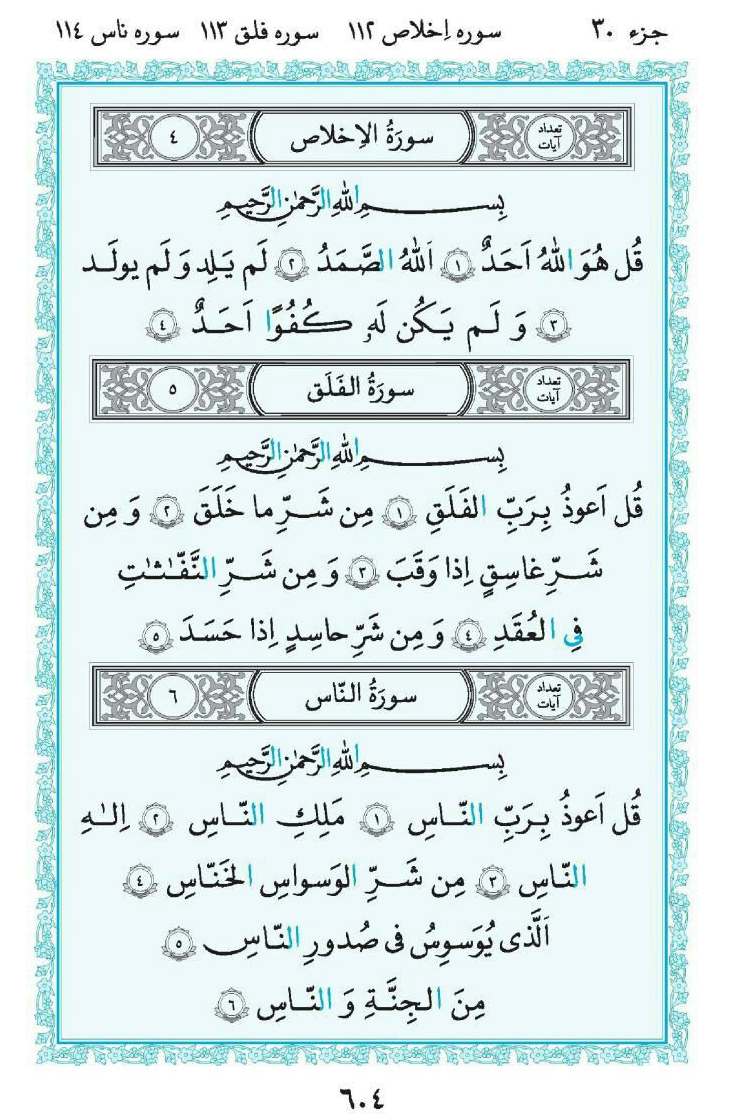 جزء ۳۰ سوره اِخلاص ۱۱۲ سوره فلق ۱۱۳ سوره ناس ۱۱٤
تعداد آیات سورَةُ الاِخلاص ٤
بِسمِ اللّٰهِ الرَّحمٰنِ الرَّحیمِ
قُل هُوَ اللّٰهُ اَحَدٌ ۱ اَللّٰهُ الصَّمَدُ ۲ لَم یَلِد وَ لَم یولَد
۳ وَ لَم یَکُن لَهٗ کُفُوًا اَحَدٌ ٤
تعداد آیات سورَةُ الفَلَق ٥
بِسمِ اللّٰهِ الرَّحمٰنِ الرَّحیمِ
قُل اَعوذُ بِرَبِّ الفَلَقِ ۱ مِن شَرِّ ما خَلَقَ ۲ وَ مِن
شَرِّ غاسِقٍ اِذا وَقَبَ ۳ وَ مِن شَرِّ النَّفّٰثٰتِ
فِی العُقَدِ ٤ وَ مِن شَرِّ حاسِدٍ اِذا حَسَدَ ٥
تعداد آیات سورَةُ النّاس ٦
بِسمِ اللّٰهِ الرَّحمٰنِ الرَّحیمِ
قُل اَعوذُ بِرَبِّ النّاسِ ۱ مَلِکِ النّاسِ ۲ اِلٰهِ
النّاسِ ۳ مِن شَرِّ الوَسواسِ الخَنّاسِ ٤
اَلَّذی یُوَسوِسُ فی صُدورِ النّاسِ ٥
مِنَ الجِنَّةِ وَ النّاسِ ٦
٦۰٤